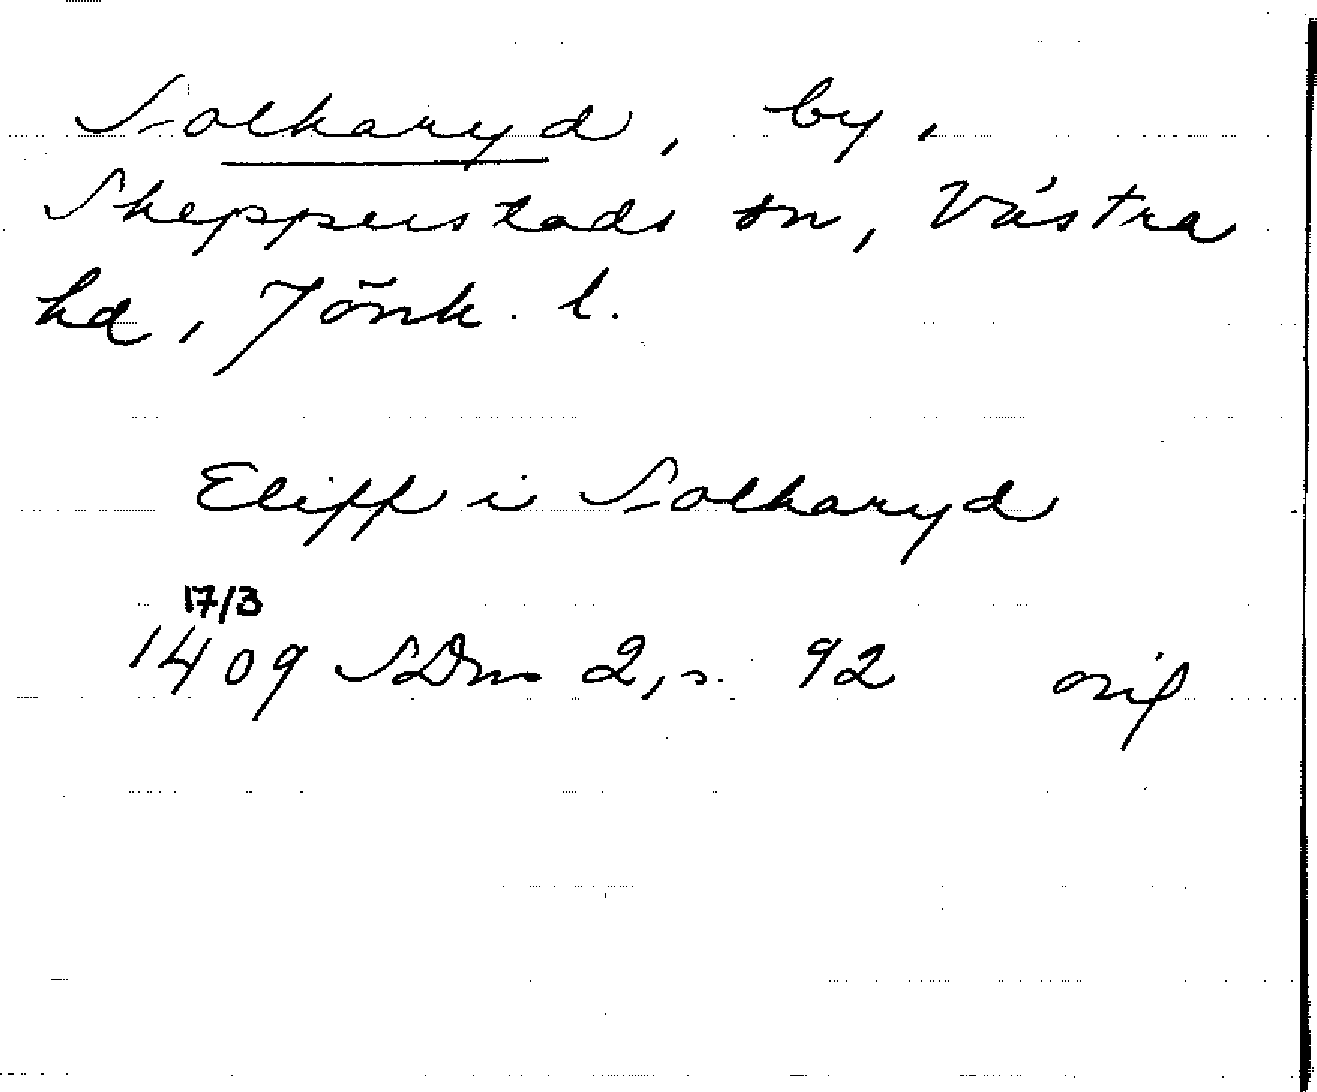 Solkaryd, by,
Skepperstads sn, Västra
hd, Jönk. l.
Eliff i Solkaryd
17/3
1409 SDns 2, s. 92 orig